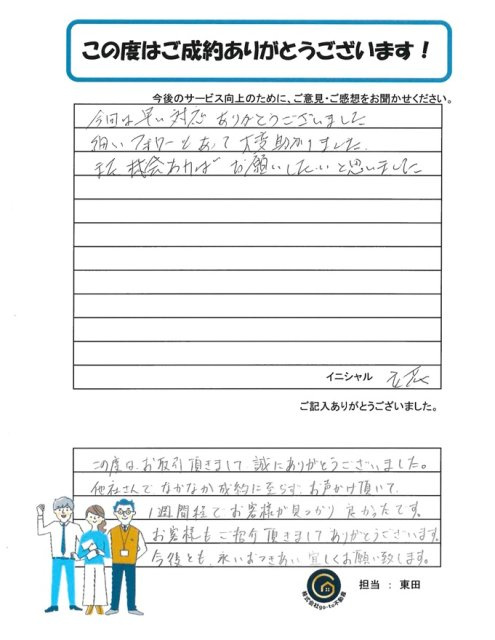 この度はご成約ありがとうございます！
今後のサービス向上のために、ご意見・ご感想をお聞かせください。
今回は早い対応ありがとうございました
細いフォローもあって大変助かりました。
また機会あればお願いしたいと思いました
イニシャル
ご記入ありがとうございました。
この度は、お取引頂きまして誠にありがとうございました。
他社さんでなかなか成約に至らず、お声がけ頂いて、
1週間程でお客様が見つかり良かったです。
お客様もご紹介頂きましてありがとうございます。
今後とも、永いおつきあい宜しくお願い致します。
株式会社go-to不動産
担当 : 東田